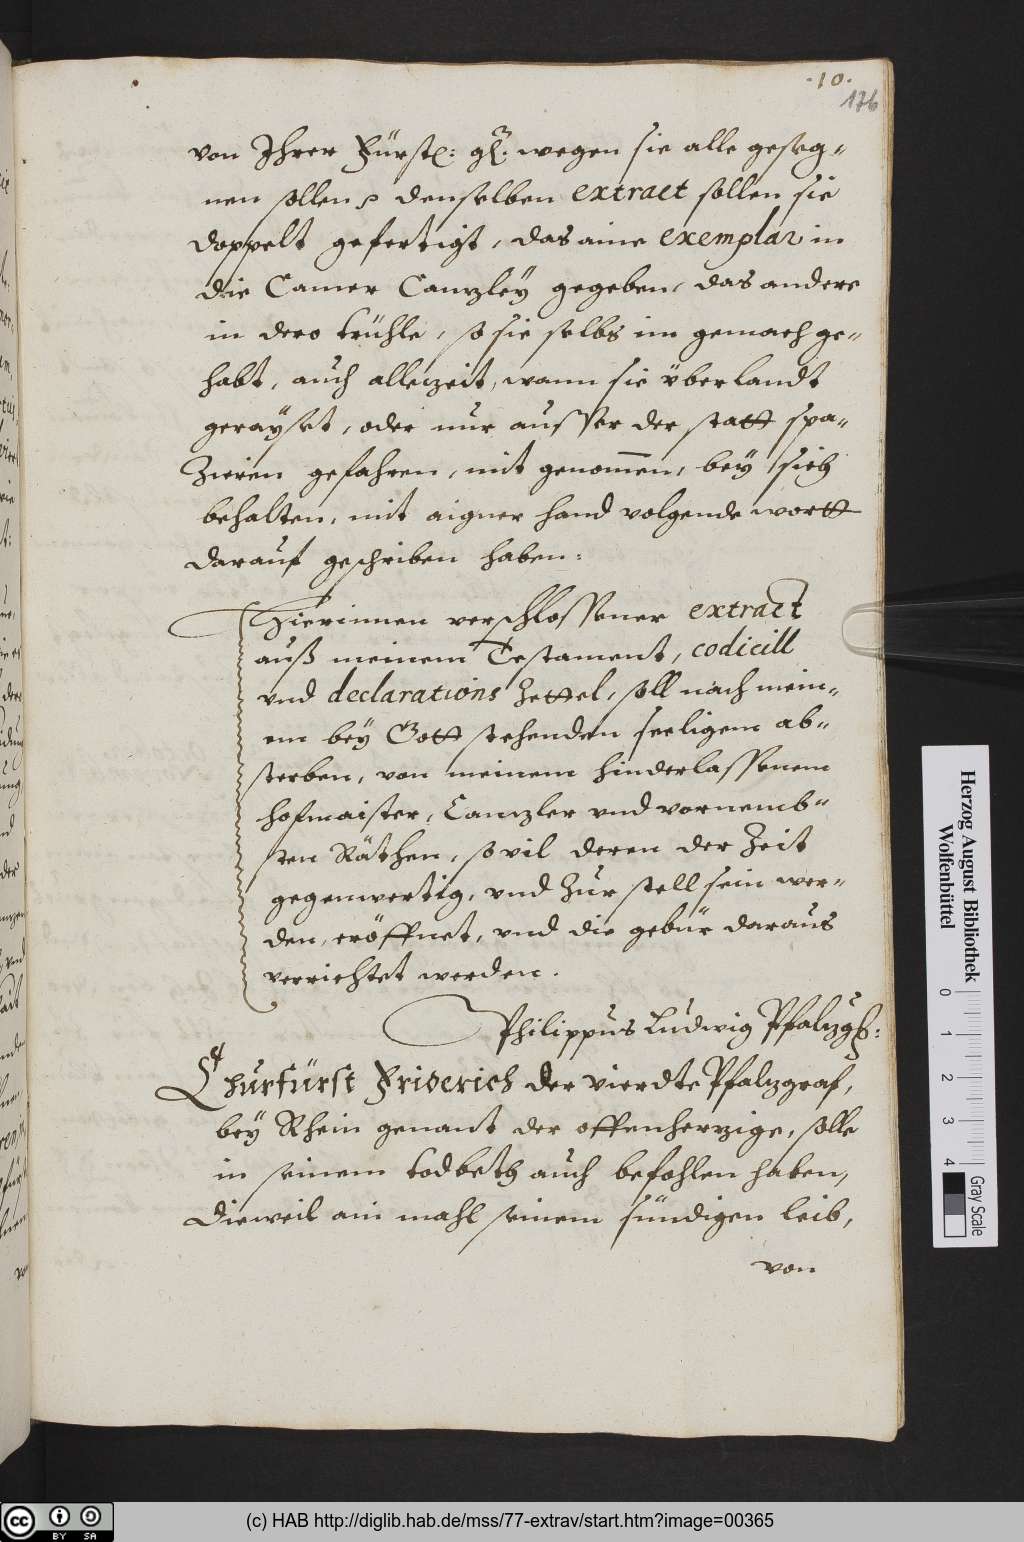 .10.
176
von Ihrer Fürstl: gl. wegen sie alle geseg-
nen sollen, denselben extract sollen sie
doppelt gefertigt, das aine exemplar in
die Camer Canzley gegeben, das andere
in dero truhle, so sie selbs im gemach ge-
habt, auch allezeit, wann sie über landt
gerayset, oder nur ausser der statt spa-
zieren gefahren, mit genommen, bey sich
behalten, mit aigner hand volgende wortt
darauf geschriben haben:
Hierinnen verschlossener extract
auß meinem Testament, codicill
vnd declarations Zettel, soll nach mein-
em bey Gott stehenden seeligem ab-
sterben, von meinem hinderlassenem
hofmaister, Canzler vnd vornemb-
sten Räthen, so vil deren der Zeit
gegenwertig, vnd Zur stell sein wer-
den, eröffnet, vnd die gebür daraus
verrichtet werden.
Philippus Ludwig Pfalzgf:
Churfürst Friderich der vierdte Pfalzgraf,
bey Rhein genant der offenherzige, solle
in seinem todbeth auch befohlen haben,
Dieweil ain mahl seinem sündigen leib,
von
Herzog August Bibliothek
Wolfenbüttel
0 1 2 3 4
Gray Scale
cc BY SA
(c) HAB http://diglib.hab.de/mss/77-extrav/start.htm?image=00365